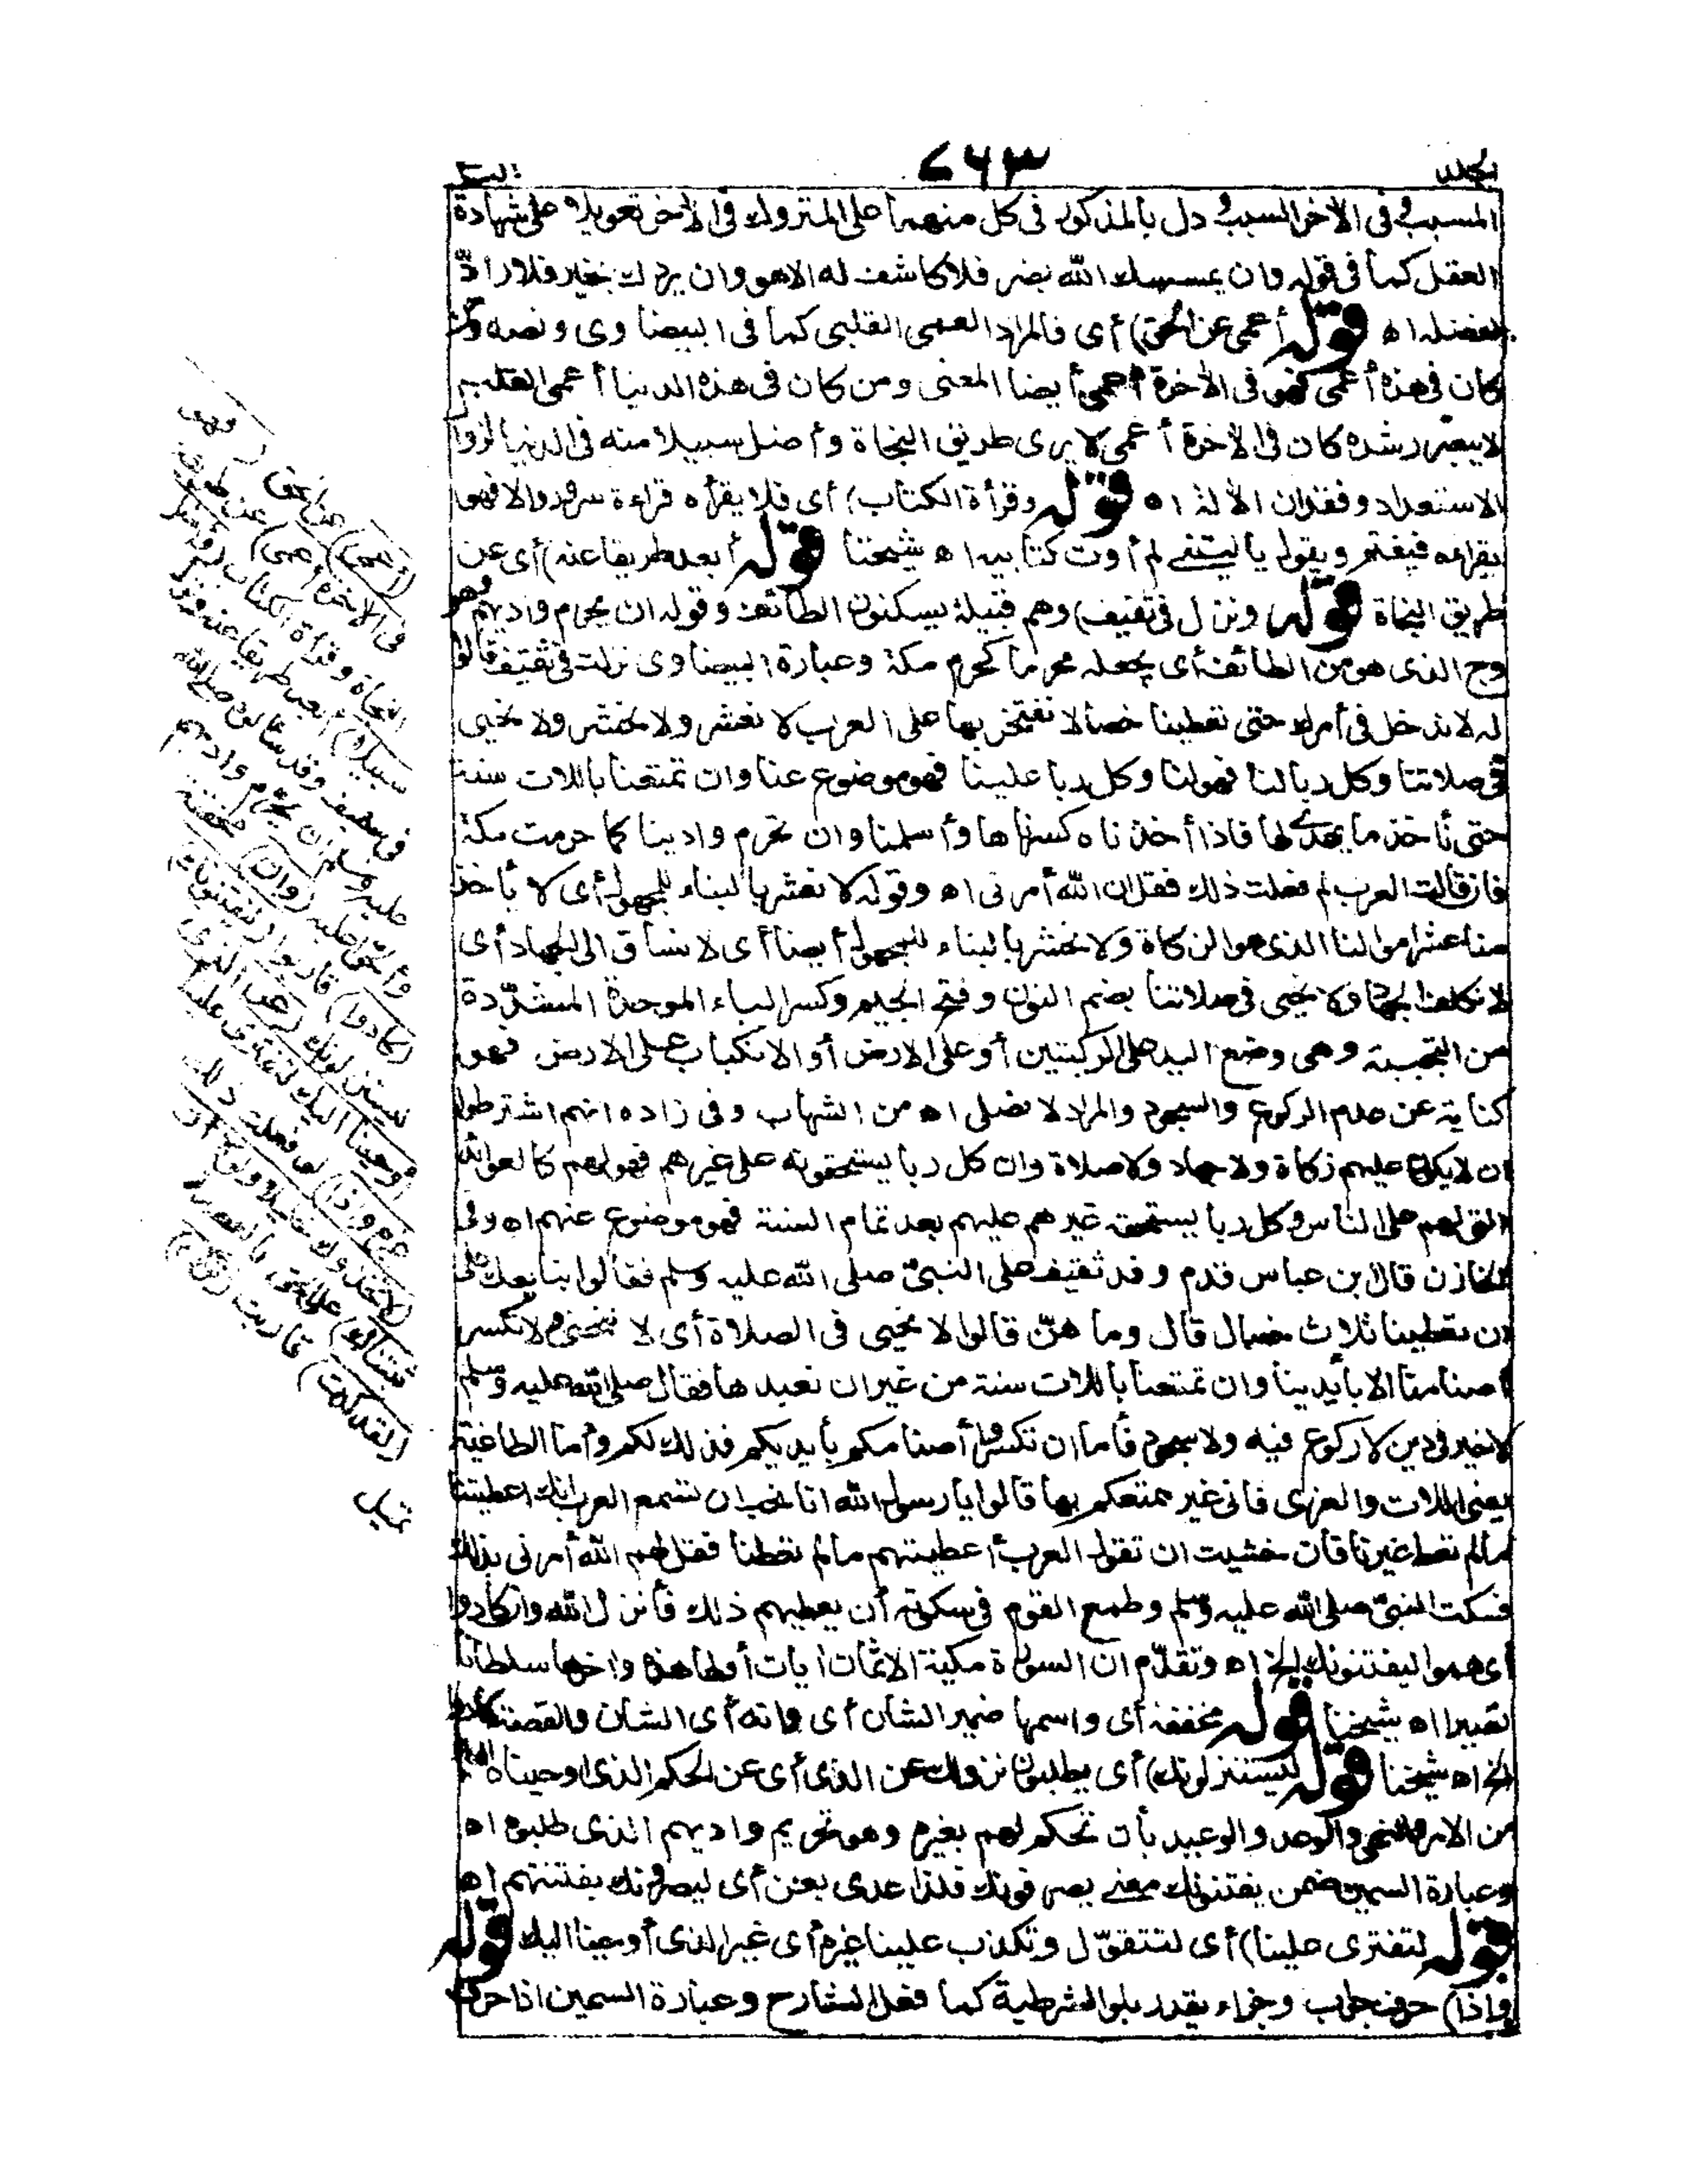 ٧٦٣
المسبب وفى الآخر السبب ودل بالمذكور فى كل منهما على المتروك فى الآخر تعويلا على شهادة
العقل كما فى قوله وان يمسسك الله بضر فلا كاشف له الا هو وان يردك بخير فلا رادّ
لفضله اه قوله أعمى عن الحق) أى فالمراد العمى القلبى كما فى البيضاوى ونصه ومن
كان فى هذه أعمى فهو فى الآخرة أعمى أيضا المعنى ومن كان فى هذه الدنيا أعمى القلب
لا يبصر رشده كان فى الآخرة أعمى لا يرى طريق النجاة وأضل سبيلا منه فى الدنيا لزوال
الاستعداد وفقدان الآلة اه قوله وقرأة الكتاب) أى فلا يقرأه قراءة سرور والا فهو
يقرأه فيغتم ويقول يا ليتنى لم أوت كتابيه اه شيخنا قوله أبعد طريقا عنه) أى عن
طريق النجاة قوله ونزل فى ثقيف) وهم قبيلة يسكنون الطائف وقوله ان يحرم واديهم وهو
وج الذى هو من الطائف أى يجعله محرما كحرم مكة وعبارة البيضاوى نزلت فى ثقيف قالوا
له لا ندخل فى أمرك حتى تعطينا خصالا نفتخر بها على العرب لا نعشر ولا نحشر ولا نجبى
فى صلاتنا وكل ربا لنا فهو لنا وكل ربا علينا فهو موضوع عنا وان تمتعنا باللات سنة
حتى نأخذ ما يهدى لها فاذا أخذناه كسرناها وأسلمنا وان تحرم وادينا كما حرمت مكة
فان قالت العرب لم فعلت ذلك فقل ان الله أمرنى اه وقوله لا نعشر بالبناء للمجهول أى لا يأخذ
منا عشر اموالنا الذى هو الزكاة ولا نحشر بالبناء للمجهول أيضا أى لا نساق الى الجهاد أى
لا نكلف الجهاد ولا نجبى فى صلاتنا بضم النون وفتح الجيم وكسر الباء الموحدة المشدّدة
من التجبية وهى وضع اليد على الركبتين أو على الارض أو الانكباب على الارض فهو
كناية عن عدم الركوع والسجود والمراد لا نصلى اه من الشهاب وفى زاده انهم اشترطوا
ان لا يكون عليهم زكاة ولا جهاد ولا صلاة وان كل ربا يستحقونه على غيرهم فهو لهم كالعوائد
التى لهم على الناس وكل ربا يستحقه غيرهم عليهم بعد تمام السنة فهو موضوع عنهم اه وفى
الخازن قال ابن عباس قدم وفد ثقيف على النبىّ صلى الله عليه وسلم فقالوا نبايعك على
ان تعطينا ثلاث خصال قال وما هنّ قالوا لا نجبى فى الصلاة أى لا ننحنى ولا نكسر
أصنامنا الا بأيدينا وان تمتعنا باللات سنة من غير ان نعبدها فقال صلى الله عليه وسلم
لا خير فى دين لا ركوع فيه ولا سجود فأما ان تكسروا أصنامكم بأيديكم فذلك لكم وأما الطاغية
يعنى اللات والعزى فانى غير ممتعكم بها قالوا يا رسول الله انا نحب ان تسمع العرب انك اعطيتنا
ما لم تعط غيرنا فان خشيت ان تقول العرب أعطيتهم ما لم تعطنا فقل لهم الله أمرنى بذلك
فسكت النبىّ صلى الله عليه وسلم وطمع القوم فى سكوته أن يعطيهم ذلك فأنزل الله وان كادوا
أى هموا ليفتنونك الخ اه وتقدّم ان السورة مكية الا ثمان آيات أولها هذه واخرها سلطانا
نصيرا اه شيخنا قوله مخففة أى واسمها ضمير الشان أى وانه أى الشان والقصة كادوا
الخ اه شيخنا قوله ليستنزلونك) أى يطلبون نزولك عن الذى أى عن الحكم الذى اوحيناه اليك
من الامر والنهى والوعد والوعيد بأن تحكم لهم بغيره وهو تحريم واديهم الذى طلبوه اه
وعبارة السمين ضمن يفتنونك معنى يصرفونك فلذا عدى بعن أى ليصرفونك بفتنتهم اه
قوله لتفترى علينا) أى لتتقوّل وتكذب علينا غيره أى غير الذى أوحينا اليك قوله
واذا) حرف جواب وجزاء يقدر بلو الشرطية كما فعل الشارح وعبارة السمين اذا حرف
(أعمى) عن الحق (فهو
فى الآخرة أعمى) عن طريق
النجاة وقراءة الكتاب (وأضل
سبيلا) أبعد طريقا عنه ونزل
فى ثقيف وقد سألوه صلى الله
عليه وسلم ان يحرم واديهم
وألحوا عليه (وان) مخففة
(كادوا) قاربوا (ليفتنونك)
ليستنزلونك (عن الذى
أوحينا اليك لتفترى علينا
غيره واذا) لو فعلت ذلك
(لاتخذوك خليلا ولولا ان
ثبتناك) على الحق بالعصمة
(لقد كدت) قاربت (تركن